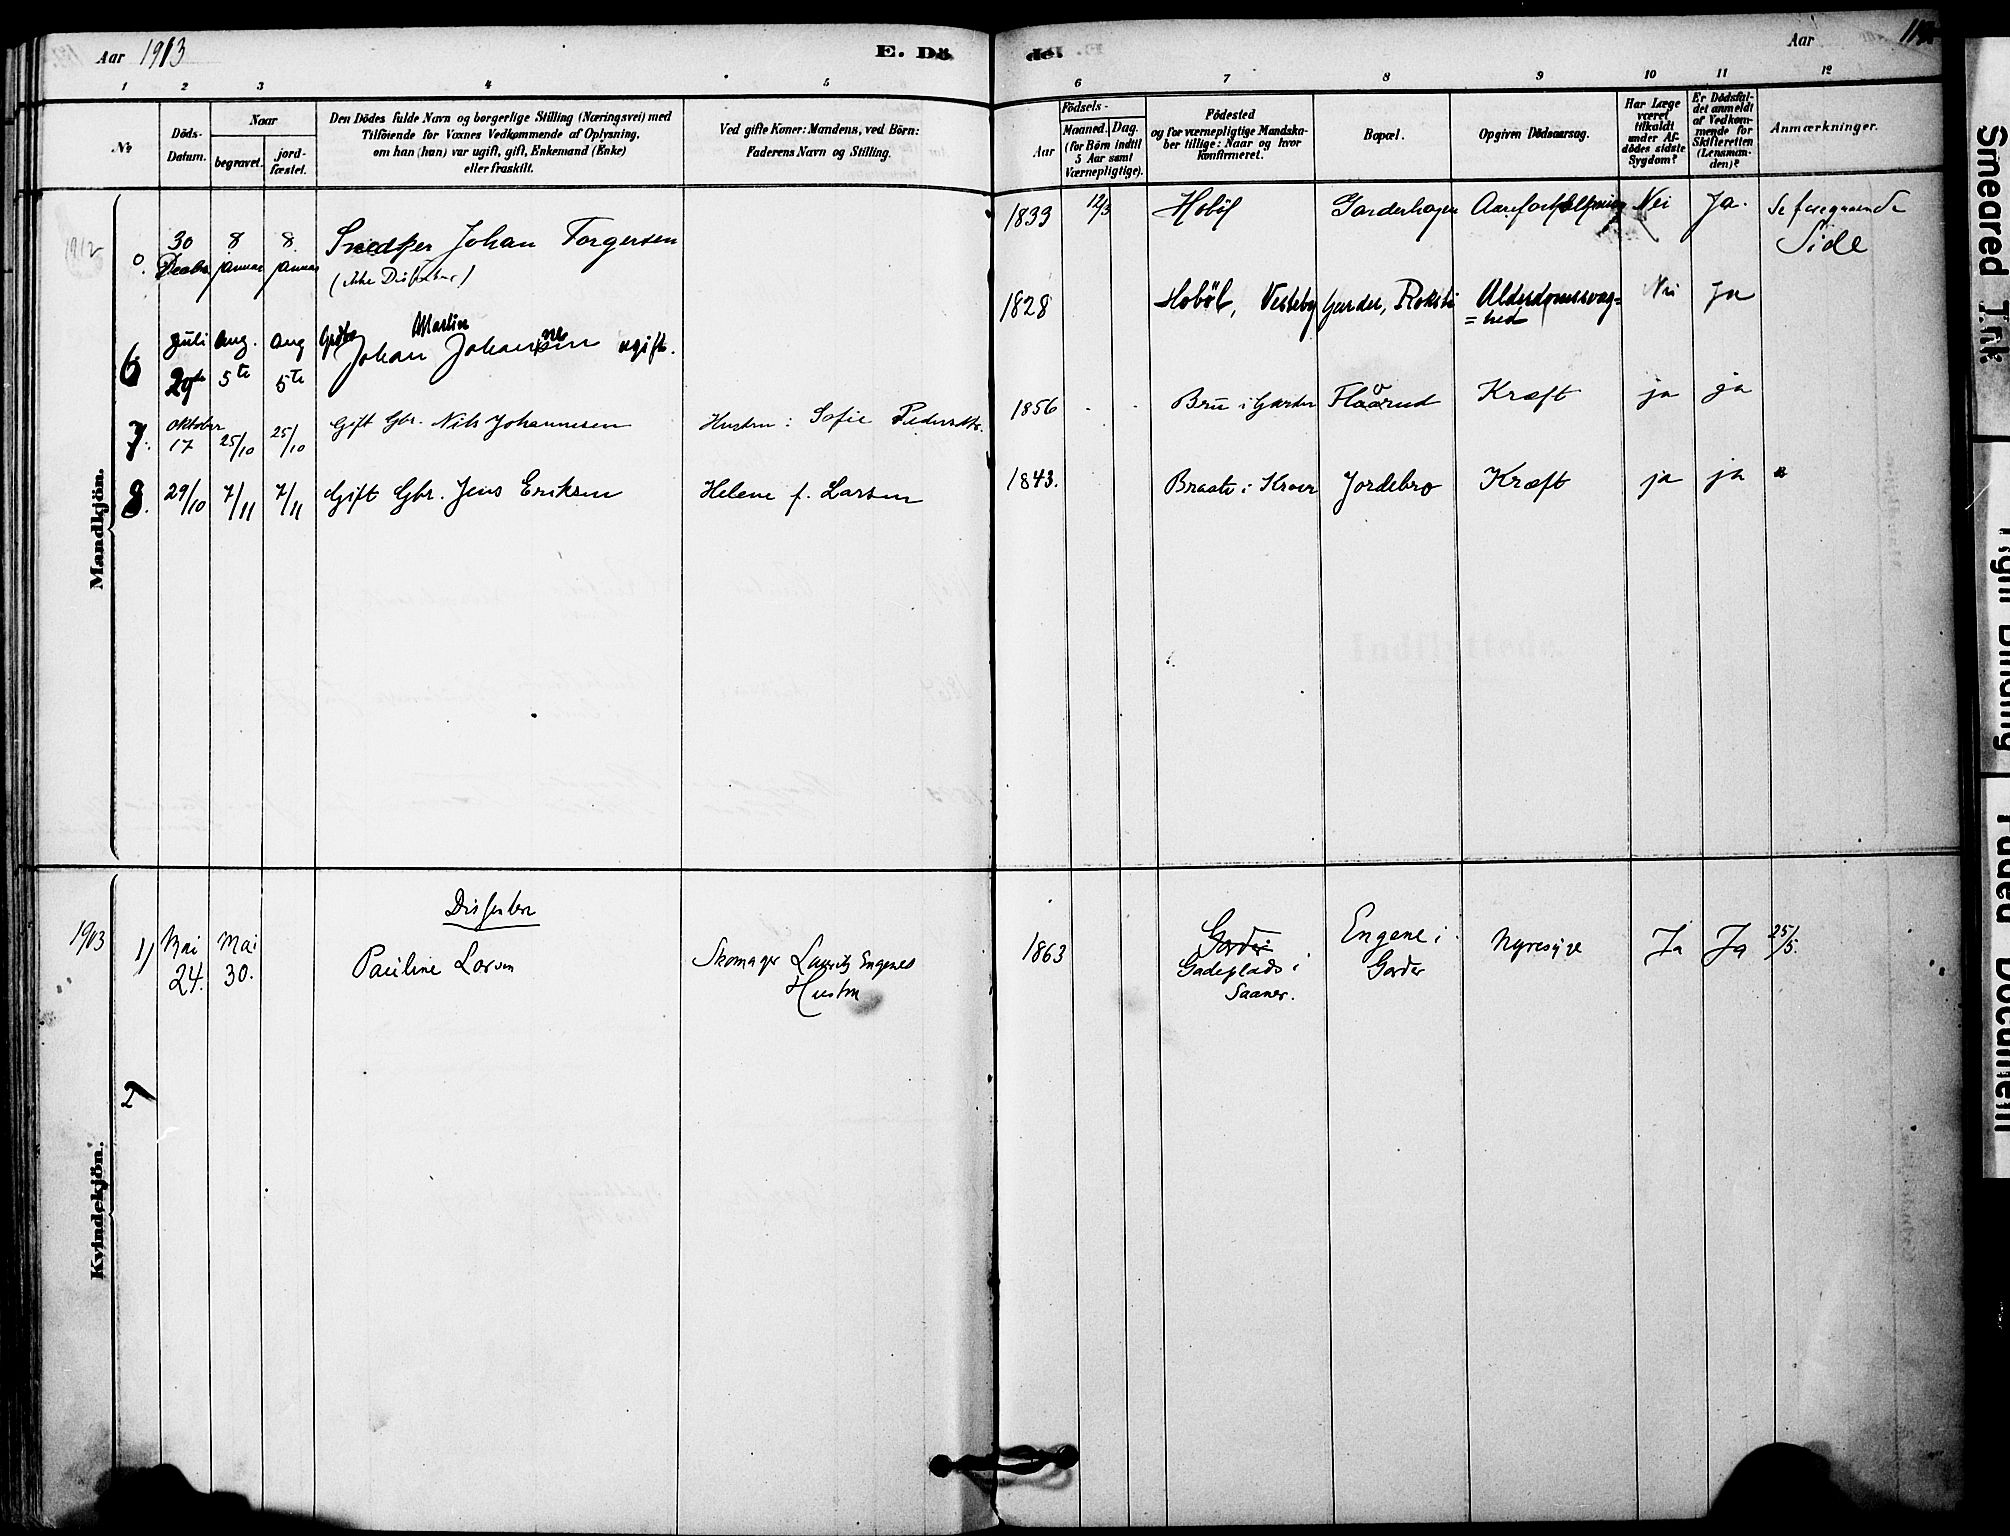 Aar 1913
E. Dö
de.
Aar
1 2 3 4 5 6 7 8 9 10 11 12
No
Döds-
Datum.
Naar
begravet.
jord-
fæstet.
Den Dödes fulde Navn og borgerlige Stilling (Næringsvei) med
Tilföiende for Voxnes Vedkommende af Oplysning,
om han (hun) var ugift, gift, Enkemand (Enke)
eller fraskilt.
Ved gifte Koner: Mandens, ved Börn:
Faderens Navn og Stilling.
Födsels-
Aar
Maaned.
Dag.
(for Börn indtil
5 Aar samt
Værnepligtige).
Födested
og for værnepligtige Mandska-
ber tillige: Naar og hvor
konfirmeret.
Bopæl.
Opgiven Dödsaarsag.
Har Læge
været
tilkaldt
under Af-
dödes sidste
Sygdom?
Er Dödsfal-
det anmeldt
af Vedkom-
mende for
Skifteretten
(Lensman-
den)?
Anmærkninger.
Mandkjön.
1912
0. 30 8 8. Snedker Johan Torgersen
Decbr januar januar (ikke Disfenter)
1839 12/3 Hoböl Garderhagen Aareforkalkning Nei Ja. Se foregaaende
Side
6 Juli Aug. Aug Gbr Johan Martin Johannesen ugift.
29de 5te 5te
1828 Hoböl, Vestby Garder, Roksti Alderdomssvag=
=hed Nei Ja
7. Oktober
17 25/10 25/10 Gift Gbr. Nils Johannesen Hustru: Sofie Pedersdtr.
1856 Bru i Garder Flaarud Kræft ja ja
8. 29/10 7/11 7/11 Gift Gbr. Jens Eriksen Helene f. Larsen
1843. Braate i Kroer Jordebro Kræft ja ja
Kvindekjön.
Disfenter
1913 1) Mai Mai
24. 30. Pauline Larsen Skomager Lauritz Engenes
Hustru
1863 Garder
Gadeplads i
Saaner.
Engene i
Garder
Nyresyge Ja Ja 25/5.
2)
Smeared Ink
Tight Binding
Faded Document